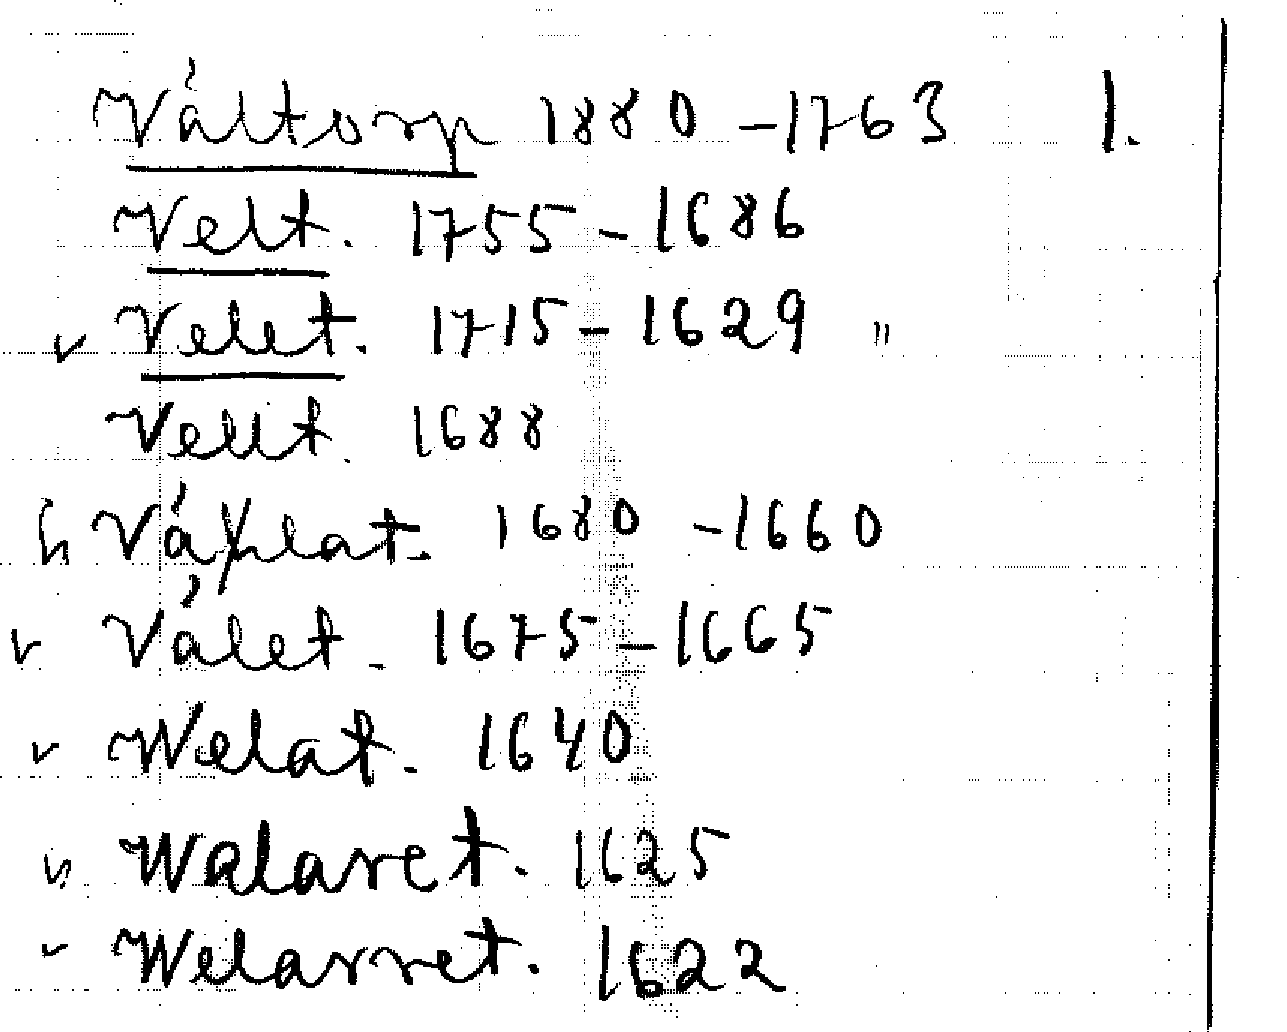 Váltorp 1880 - 1763 1.
Velt. 1755 - 1686
v Velet. 1715 - 1629 "
Vellt. 1688
Válat. 1680 - 1660
v Válet. 1675 - 1665
v Welat. 1640
Walaret. 1625
Welarret. 1622